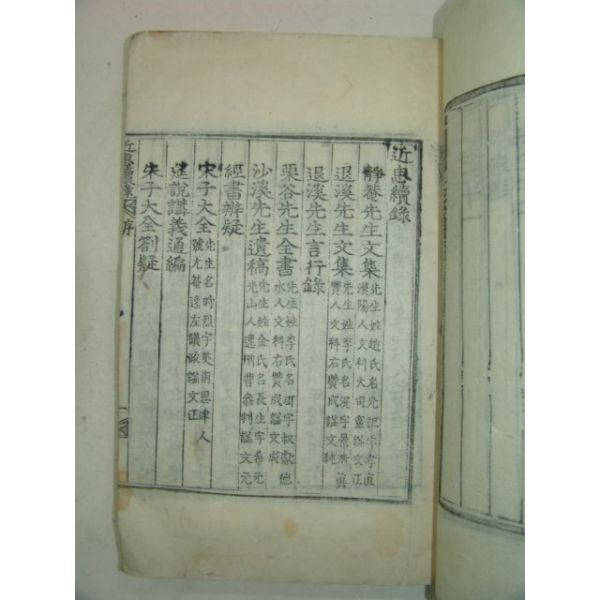 近思續錄
靜菴先生文集 先生姓趙氏名光祖字孝直
漢陽人文科大司憲謚文正
退溪先生文集 先生姓李氏名滉字景浩眞
寶人文科右贊成謚文純
退溪先生言行錄
栗谷先生全書 先生姓李氏名珥字叔獻德
水人文科右贊成謚文成
沙溪先生遺稿 先生姓金氏名長生字希元
光山人逸刑曹參判謚文元
經書辨疑
宋子大全 先生名時烈字英甫恩津人
號尤菴逸左議政謚文正
進說講義通編
朱子大全劄疑
近思續錄 序
一